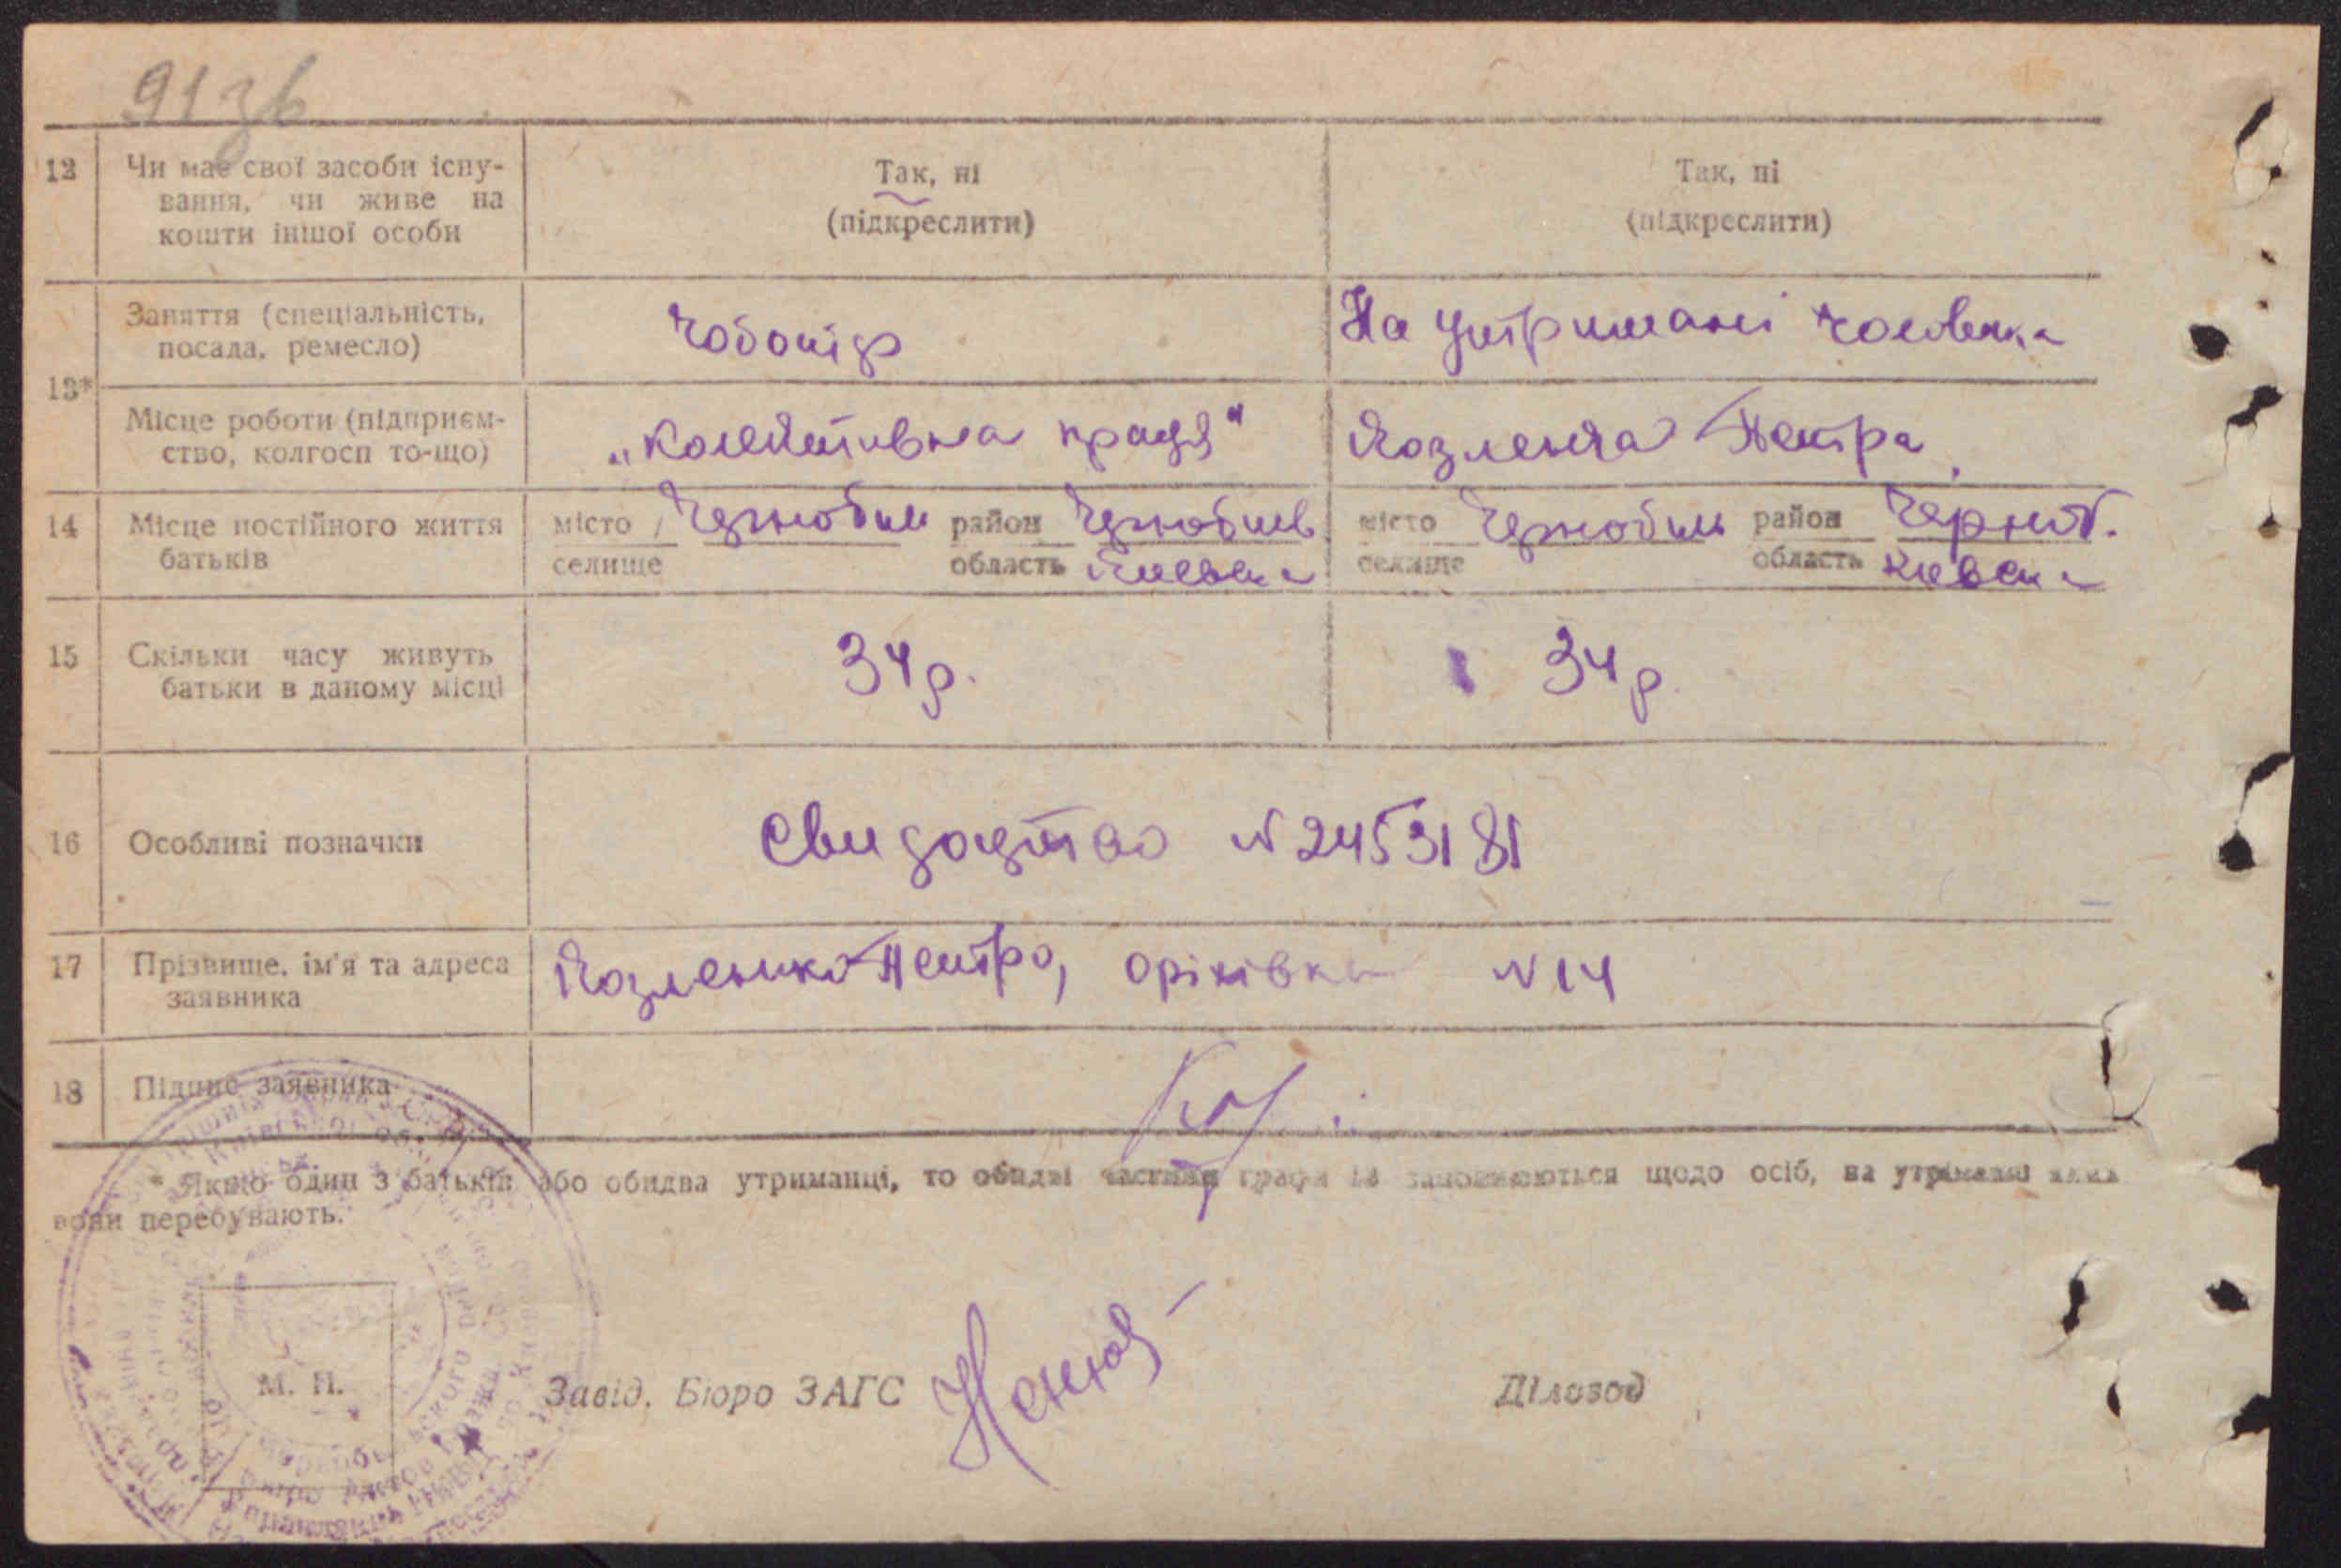 91 зв
12 Чи має свої засоби існу-
вання, чи живе на
кошти іншої особи
Так, ні
(підкреслити)
Так, ні
(підкреслити)
13*
Заняття (спеціальність,
посада, ремесло)
Чоботір
На утримані чоловіка
Місце роботи (підприєм-
ство, колгосп то-що)
„Колективна праця"
Козленка Петра
14 Місце постійного життя
батьків
місто Чернобиль район Чернобилв
селище область Киевска
місто Чернобиль район Чорноб.
селище область Киевска
15 Скільки часу живуть
батьки в даному місці
34 р.
34 р
16 Особливі позначки
Свидоцтво N 2453181
17 Прізвище, ім'я та адреса
заявника
Козленко Петро, N 14
18 Підпис заявника
* Якщо один з батьків або обидва утриманці, то обидві частини графи 13 заповнюються щодо осіб, на утриманні яких
вони перебувають.
М. П.
Завід. Бюро ЗАГС
Діловод